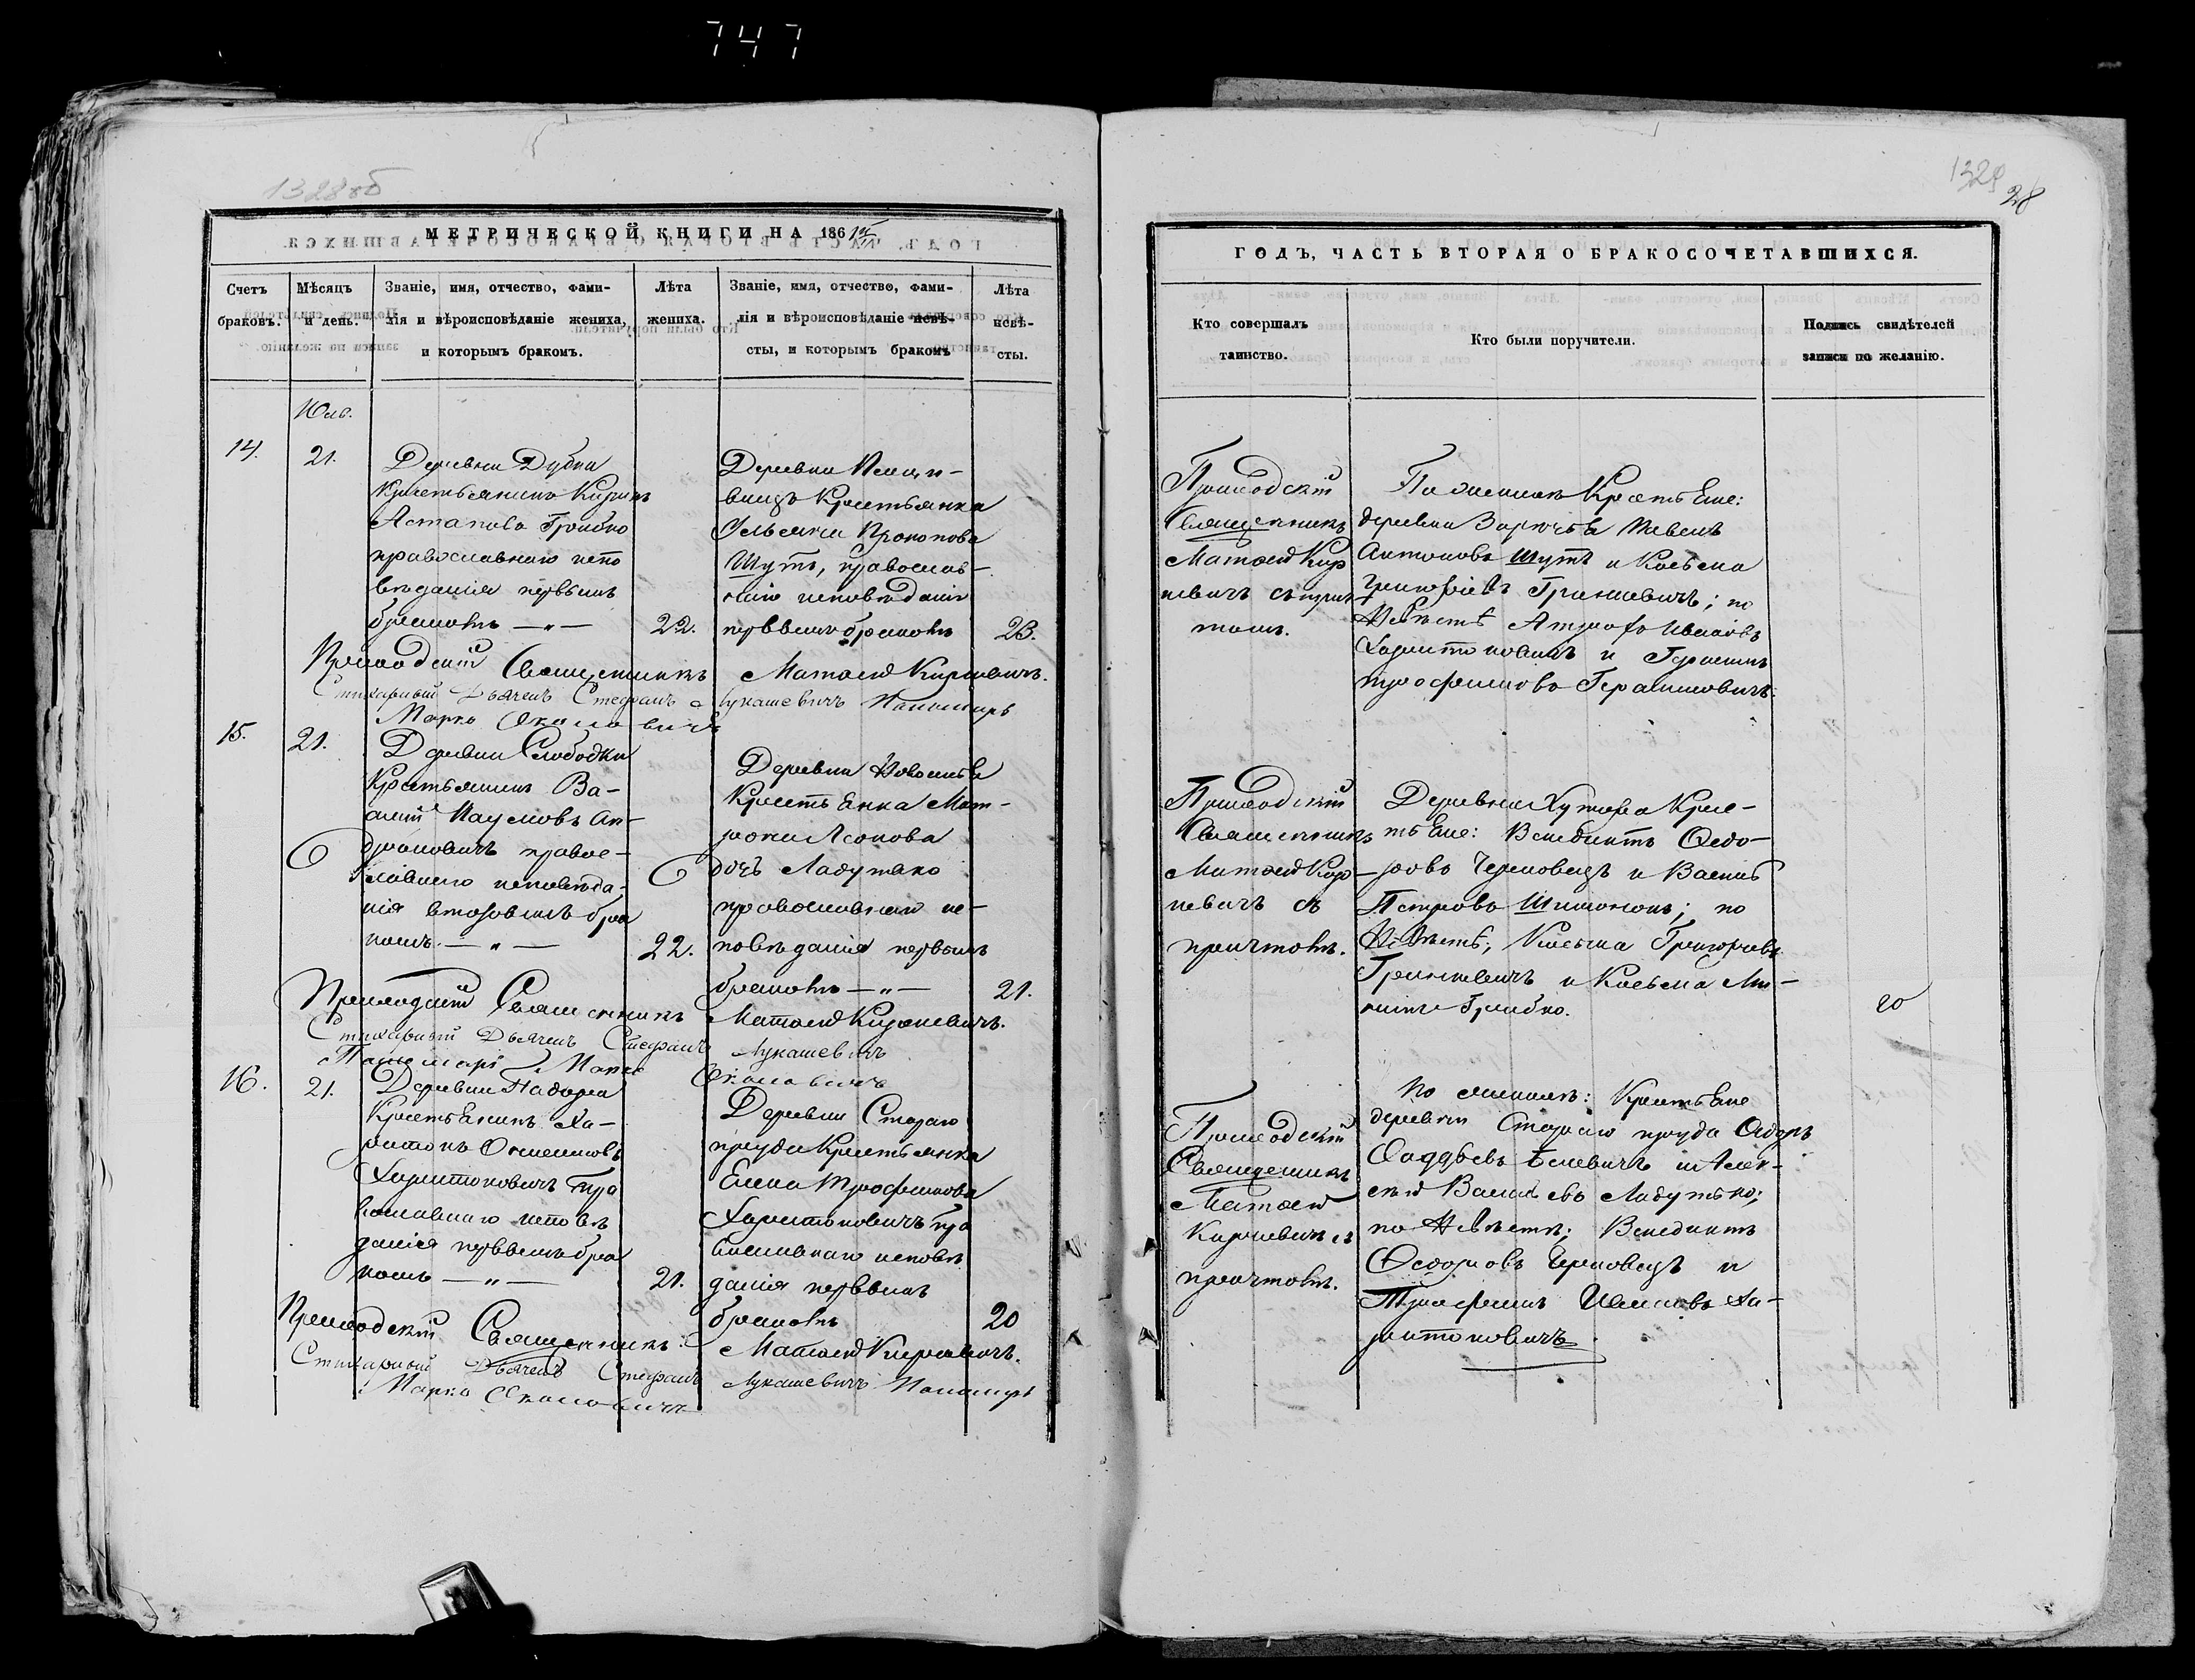 747
1328об
МЕТРИЧЕСКОЙ КНИГИ НА 186
Счетъ браковъ.
Мѣсяцъ и день.
Званіе, имя, отчество, фами-
лія и вѣроисповѣданіе жениха,
и которымъ бракомъ.
Лѣта жениха.
Званіе, имя, отчество, фами-
лія и вѣроисповѣданіе невѣ-
сты, и которымъ бракомъ
Лѣта невѣ-
сты.
14.
21.
Деревни Дубна
Крестьянинъ
Астапова Грибко
православнаго испо
вѣданія первымъ
бракомъ — „ —
22.
Деревни
вицъ Крестьянка
Прокопова
Шутъ, православ-
исповѣданія
первымъ бракомъ
23.
Приходскій Священникъ Матөей Киркевичъ.
Стихарный Дьячекъ Стефанъ Лукашевичъ Пономарь
Марко
15.
21.
Деревни Слободки
Крестьянинъ Ва-
Наумовъ Ан-
дроновичъ правос-
лавнаго исповѣда-
нія вторымъ бра
комъ — „ —
22.
Деревни Новоселья
Крестьянка Мат-
рона Леонова
дочь Ладутько
православнаго ис-
повѣданія первымъ
бракомъ — „ —
21.
Приходскій Священникъ Матөей Киркевичъ.
Стихарный Дьячекъ Стефанъ Лукашевичъ
Пономарь Марко
16.
21.
Деревни
Крестьянинъ Ха-
ритонъ
Харитоновичъ пра
вославнаго исповѣ
данія первымъ бра
комъ — „ —
21.
Деревни Стараго
пруда Крестьянка
Елена Трофимова
Харитоновичъ пра
вославнаго исповѣ
данія первымъ
бракомъ
20
Приходскій Священникъ Матөей Киркевичъ.
Стихарный Дьячекъ Стефанъ Лукашевичъ Пономарь
Марко
1329
28
ГОДЪ, ЧАСТЬ ВТОРАЯ О БРАКОСОЧЕТАВШИХСЯ.
Кто совершалъ
таинство.
Кто были поручители.
Подпись свидѣтелей
записи по желанію.
Приходскій
Священникъ
Матөей Кир
кевичъ съ прич
томъ.
По женихѣ Крестьяне:
деревни Заречья
Антоновъ Шутъ и Косьма
Григорьевъ Гринкевичъ; по
Невѣстѣ Ивановъ
Харитоновичъ и Герасимъ
Трофимовъ Герасимовичъ.
Приходскій
Священникъ
Матөей Кир-
кевичъ съ
причтомъ.
Деревни Хутора Крес-
тьяне: Венедиктъ Өедо-
ровъ Черновецъ и Василь
Петровъ; по
Невѣстѣ, Косьма Григорьевъ
Гринкевичъ и Косьма Ми-
Грибко.
Приходскій
Священникъ
Матөей
Киркевичъ съ
причтомъ.
По женихѣ: Крестьяне
деревни Стараго пруда Өедоръ
Алек-
сѣй Васильевъ Ладутько;
по Невѣстѣ; Венедиктъ
Өедоровъ Черновецъ и
Трофимъ Ивановъ Ха-
ритоновичъ